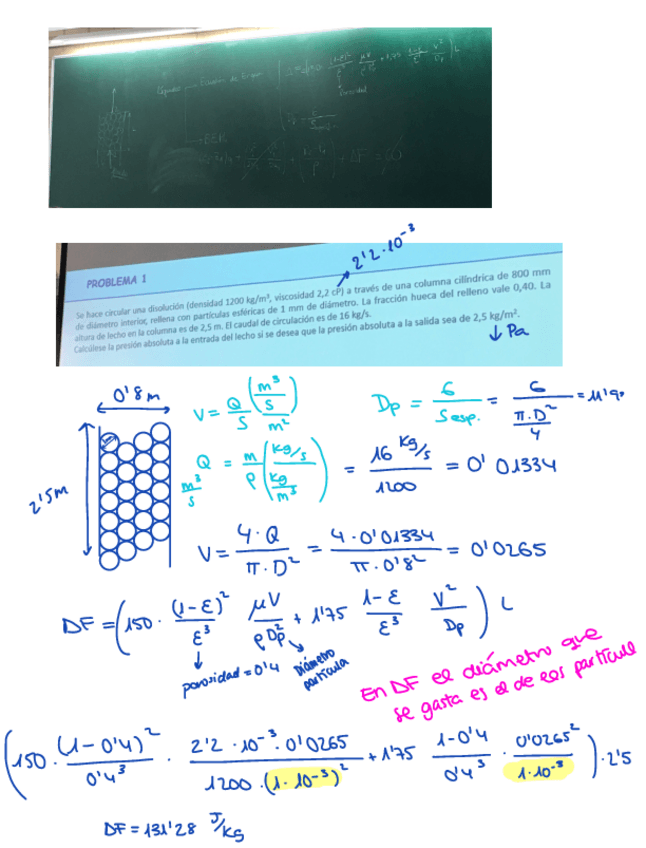 Líquidos → Ecuación de Ergun
Porosidad
BEM
2'2·10⁻³
PROBLEMA 1
Se hace circular una disolución (densidad 1200 kg/m³, viscosidad 2,2 cP) a través de una columna cilíndrica de 800 mm
de diámetro interior, rellena con partículas esféricas de 1 mm de diámetro. La fracción hueca del relleno vale 0,40. La
altura de lecho en la columna es de 2,5 m. El caudal de circulación es de 16 kg/s.
Calcúlese la presión absoluta a la entrada del lecho si se desea que la presión absoluta a la salida sea de 2,5 kg/m².
↓ Pa
0'8 m
2'5m
V = Q/S (m³/s / m²)
Dp = 6/Sesp. = 6/(π·D²/4) = 11'9
Q m³/s = m/ρ (kg/s / kg/m³) = 16 kg/s / 1200 = 0'01334
V = 4·Q/(π·D²) = 4·0'01334/(π·0'8²) = 0'0265
DF = (150 · (1-ε)²/ε³ μV/(ρDp²) + 1'75 (1-ε)/ε³ V²/Dp) L
porosidad = 0'4
Diámetro partícula
En DF el diámetro que
se gasta es el de las partícul
(150 · (1-0'4)²/0'4³ · 2'2·10⁻³·0'0265/(1200·(1·10⁻³)²) + 1'75 (1-0'4)/0'4³ · 0'0265²/(1·10⁻³)) · 2'5
DF = 131'28 J/kg